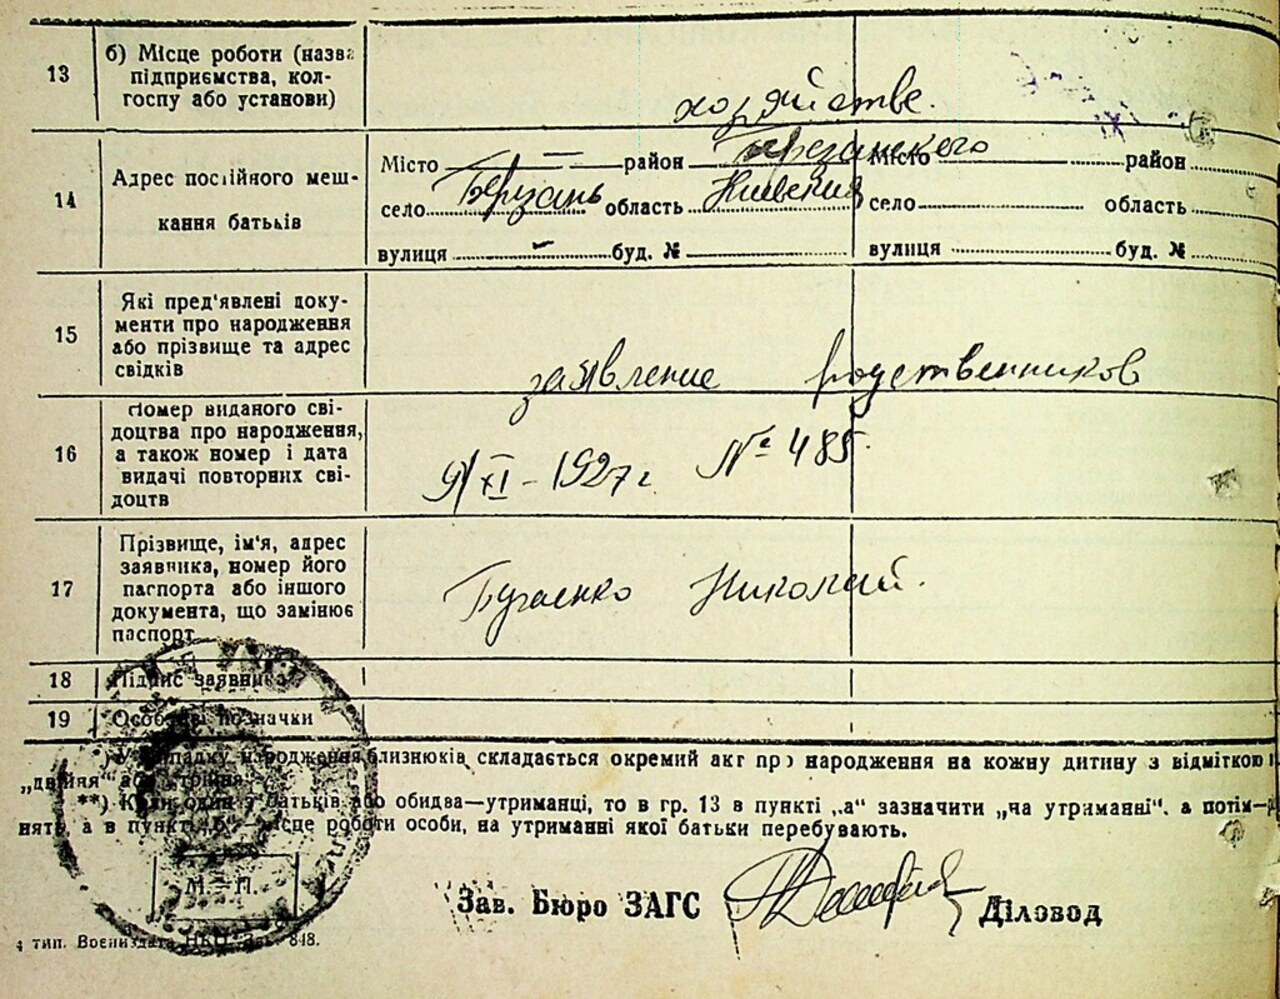 13
б) Місце роботи (назва
підприємства, кол-
госпу або установи)
хозяйстве.
14
Адрес постійного меш-
кання батьків
Місто — район Березанского
село Березань область Киевская
вулиця - буд. №
Місто район
село область
вулиця буд. №
15
Які пред'явлені доку-
менти про народження
або прізвище та адрес
свідків
заявление родственников
16
Номер виданого сві-
доцтва про народження,
а також номер і дата
видачі повторних сві-
доцтв
9/XI - 1927 г. № 485.
17
Прізвище, ім'я, адрес
заявника, номер його
паспорта або іншого
документа, що замінює
паспорт
Бугаенко Николай.
18
Підпис заявника
19
Особливі позначки
*) У випадку народження близнюків складається окремий акт про народження на кожну дитину з відміткою
„двійня“ або трійня
**) Коли один з батьків або обидва—утриманці, то в гр. 13 в пункті „а“ зазначити „на утриманні“, а потім—
нять, а в пункті „б“ місце роботи особи, на утриманні якої батьки перебувають.
М.—П.
Зав. Бюро ЗАГС
Діловод
4 тип. Воениздата НКО. Зак. 848.